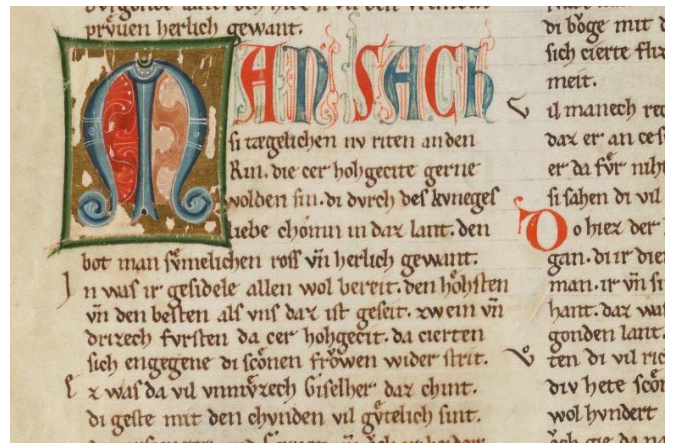 prv̊uen herlich gewant.
MAN SACH
ſi tægelichen nv riten an den
Rin. die cer hohgecite gerne
wolden ſin. di dvrch deſ kvnegeſ
liebe chómn in daz lant. den
bot man ſv̊melichen roſſ vn̄ herlich gewant.
In waſ ir geſidele allen wol bereit. den hőhſten
vn̄ den beſten alſ vnſ daz iſt geſeit. zwein vn̄
drizech fvrſten da cer hohgecit. da cierten
ſich engegene di ſcőnen frőwen wider ſtrit.
Ez waſ da vil vnmv̊zech Giſelher daz chint.
di geſte mit den chvnden vil gv̊telich ſint.
di böge mit
ſich cierte
meit.
il manech
daz er an
er da fv̊r niht
ſi ſahen di vil
Do hiez der
gan. di ir
man. ir vn̄
hant. daz
gonden lant.
ten di vil
div hete
wol hvndert